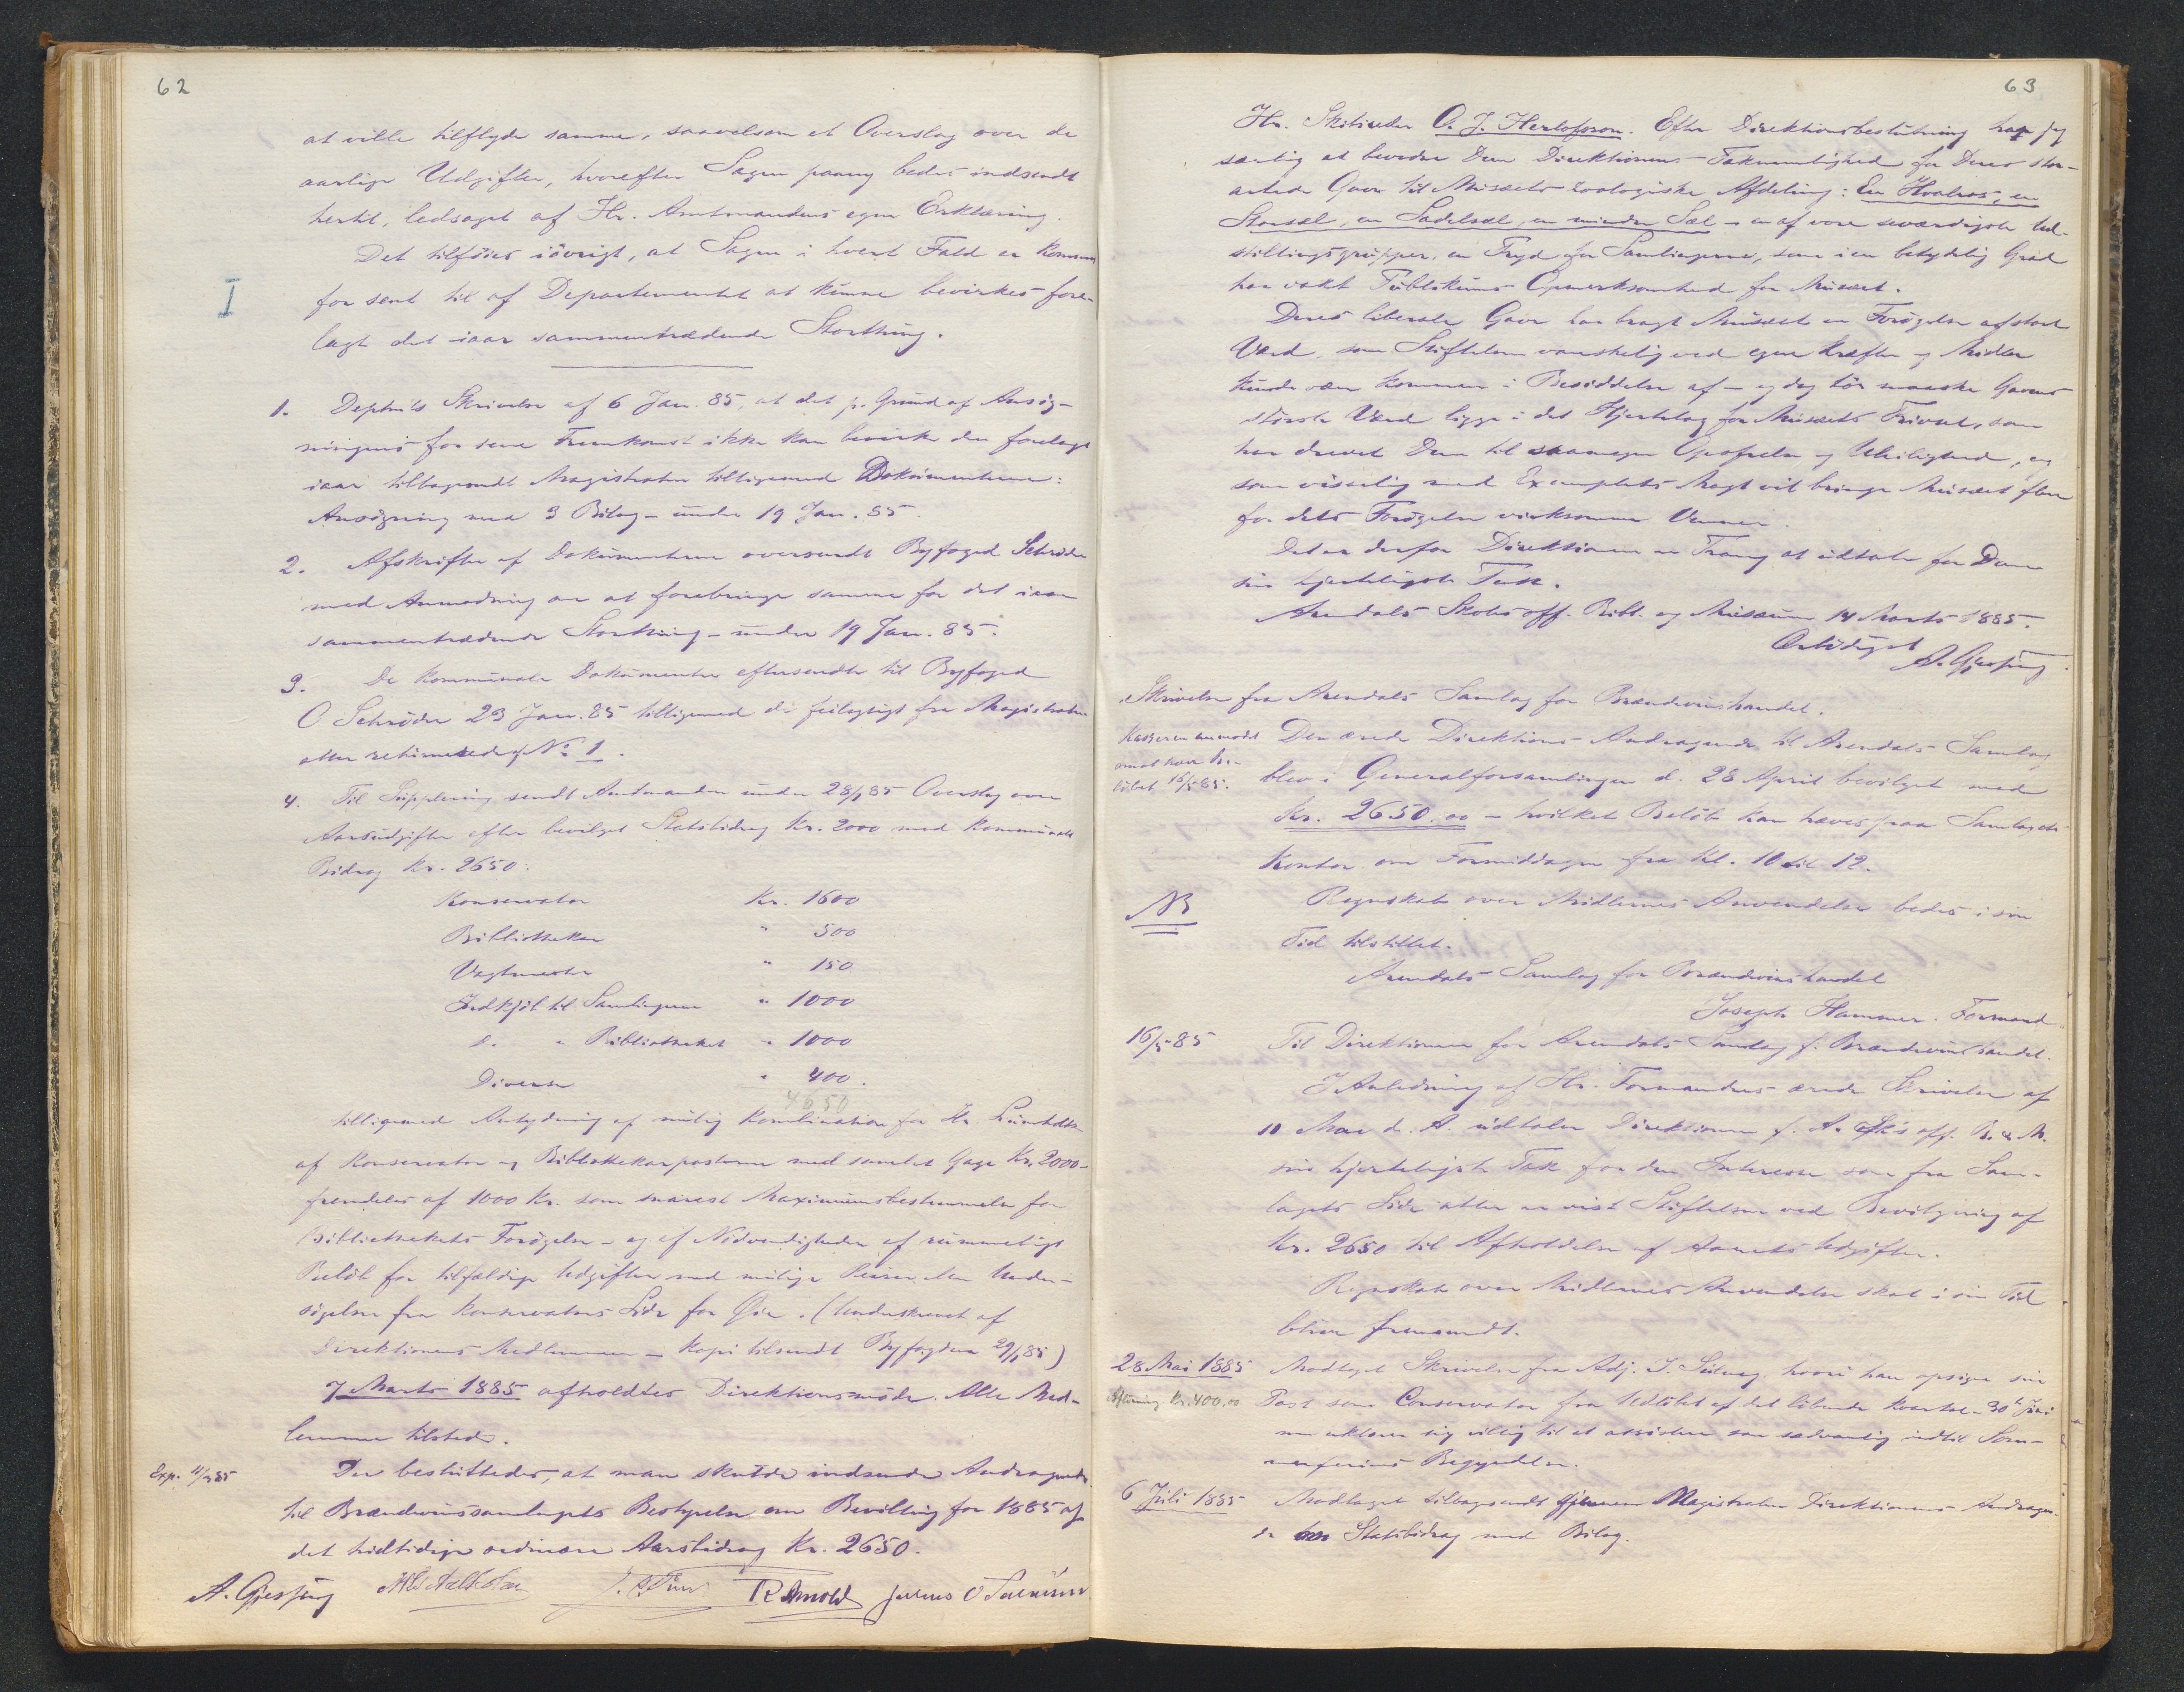 62
at ville tilflyde samme, saavelsom et Overslag over de
aarlige Udgifter, hvorefter Sagen paany bedes indsendt
hertil, ledsaget af Hr. Amtmandens egen Erklæring.
Det tilføies iøvrigt, at Sagen i hvert Fald er kommen
I
for sent til af Departementet at kunne bevirkes fore-
lagt det iaar sammentrædende Storthing.
1. Deptm'ts Skrivelse af 6 Jan. 85, at det p. Grund af Ansøg-
ningens for sene Fremkomst ikke kan bevirke den forelagt
iaar tilbagesendt Magistraten tilligemed Dokumenterne:
Ansøgning med 3 Bilag - under 19 Jan. 85.
2. Afskrifter af Dokumenterne oversendt Byfoged Schrøder
med Anmodning om at forebringe samme for det iaar
sammentrædende Storthing - under 19 Jan. 85.
3. De kommunale Dokumenter eftersendte til Byfoged
O. Schrøder 23 Jan. 85 tilligemed de feilagtigt fra Magistraten
atter returnerede af No 1.
4. Til Supplering sendt Amtmanden under 28/1 85 Overslag over
Aarsudgifter efter bevilget Statsbidrag Kr. 2000 med kommunale
Bidrag Kr. 2650:
Konservator Kr. 1600
Bibliothekar " 500
Vagtmester " 150
Indkjøb til Samlingerne " 1000
d. " Bibliotheket " 1000
Diverse " 400.
4650
tilligemed Antydning af mulig Kombination for Hr.
af Konservator og Bibliothekarposterne med samlet Gage Kr. 2000 -
fremdeles af 1000 Kr. som snarest Maximumsbestemmelse for
Bibliothekets Forøgelse - og af Nødvendigheden af rummeligt
Beløb for tilfældige Udgifter med mulige Reiser eller Under-
søgelser fra Konservators Side for Øie. (Underskrevet af
Direktionens Medlemmer - Kopi tilsendt Byfogden 29/1 85)
7 Marts 1885 afholdtes Direktionsmøde. Alle Med-
lemmer tilstede.
Exp. 11/3 85 Der besluttedes, at man skulde indsende Andragende
til Brændevinssamlagets Bestyrelse om Bevilling for 1885 af
det hidtidige ordinære Aarsbidrag Kr. 2650.
A. Gjessing R Arnold Julius O
63
Hr. Skibsreder O. J. Herlofson. Efter Direktionsbeslutning har jeg
særlig at bevidne Dem Direktionens Taknemlighed for Deres stor-
artede Gave til Musæets zoologiske Afdeling: En Hvalros, en
Storsæl, en Sadelsæl, en mindre Sæl - en af vore seværdigste Ud-
stillingsgrupper, en Pryd for Samlingerne, som i en betydelig Grad
har vakt Publikums Opmerksomhed for Musæet.
Deres liberale Gave har bragt Musæet en Forøgelse af stort
Værd, som Stiftelsen vanskelig ved egne Kræfter og Midler
kunde være kommen i Besiddelse af - og dog tør maaske Gavens
største Værd ligge i det Hjertelag for Musæets Trivsel, som
har drevet Dem til saamegen Opofrelse og Uleilighed, og
som visselig med Exemplets Magt vil bringe Musæet flere
for dets Forøgelse virksomme Venner.
Det er derfor Direktionen en Trang at udtale for Dem
sin hjerteligste Tak.
Arendals Skoles off. Bibl. og Musæum 14 Marts 1885.
Ærbødigst
A. Gjessing.
Skrivelse fra Arendals Samlag for Brændevinshandel.
Kassereren anmodet
om at hæve Be-
løbet 16/5 85.
Den ærede Direktions Andragende til Arendals Samlag
blev i Generalforsamlingen d. 28 April bevilget med
Kr. 2650.00 - hvilket Beløb kan hæves paa Samlagets
Kontor om Formiddagen fra Kl. 10 til 12.
NB Regnskab over Midlernes Anvendelse bedes i sin
Tid tilstillet.
Arendals Samlag for Brændevinshandel
Joseph Hammer. Formand.
16/5 85 Til Direktionen for Arendals Samlag f. Brændevinshandel.
I Anledning af Hr. Formandens ærede Skrivelse af
10 Mai d. A. udtaler Direktionen f. A. Sk's off. B. & M.
sin hjerteligste Tak for den Interesse som fra Sam-
lagets Side atter er vist Stiftelsen ved Bevilgning af
Kr. 2650 til Afholdelse af Aarets Udgifter.
Regnskab over Midlernes Anvendelse skal i sin Tid
blive fremsendt.
28 Mai 1885 Modtaget Skrivelse fra Adj. hvori han opsiger sin
Kr. 400.00 Post som Conservator fra Udløbet af det løbende Kvartal - 30te Juni
men erklærer sig villig til at assistere som sædvanlig indtil Som-
merferiens Begyndelse.
6 Juli 1885 Modtaget tilbagesendt gjennem Magistraten Direktionens Andragen-
de om Statsbidrag med Bilag.